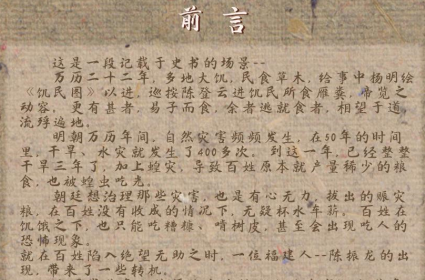 前言
这是一段记载于史书的场景--
万历二十二年，多地大饥，民食草木，给事中杨明绘
《饥民图》以进，巡按陈登云进饥民所食雁粪，帝览之
动容，更有甚者，易子而食，余者逃就食者，相望于道
流殍遍地。
明朝万历年间，自然灾害频频发生，在50年的时间
里，干旱，水灾就发生了400多次，到这一年，已经整整
干旱三年了，加上蝗灾，导致百姓原本就产量稀少的粮
食，也被蝗虫吃光。
朝廷想治理那些灾害，也是有心无力，拨出的赈灾
粮，在百姓没有收成的情况下，无疑杯水车薪，百姓在
饥饿之下，也只能吃糟糠、啃树皮，甚至会出现吃人的
恐怖现象
就在百姓陷入绝望无助之时，一位福建人--陈振龙的出
现，带来了一些转机。